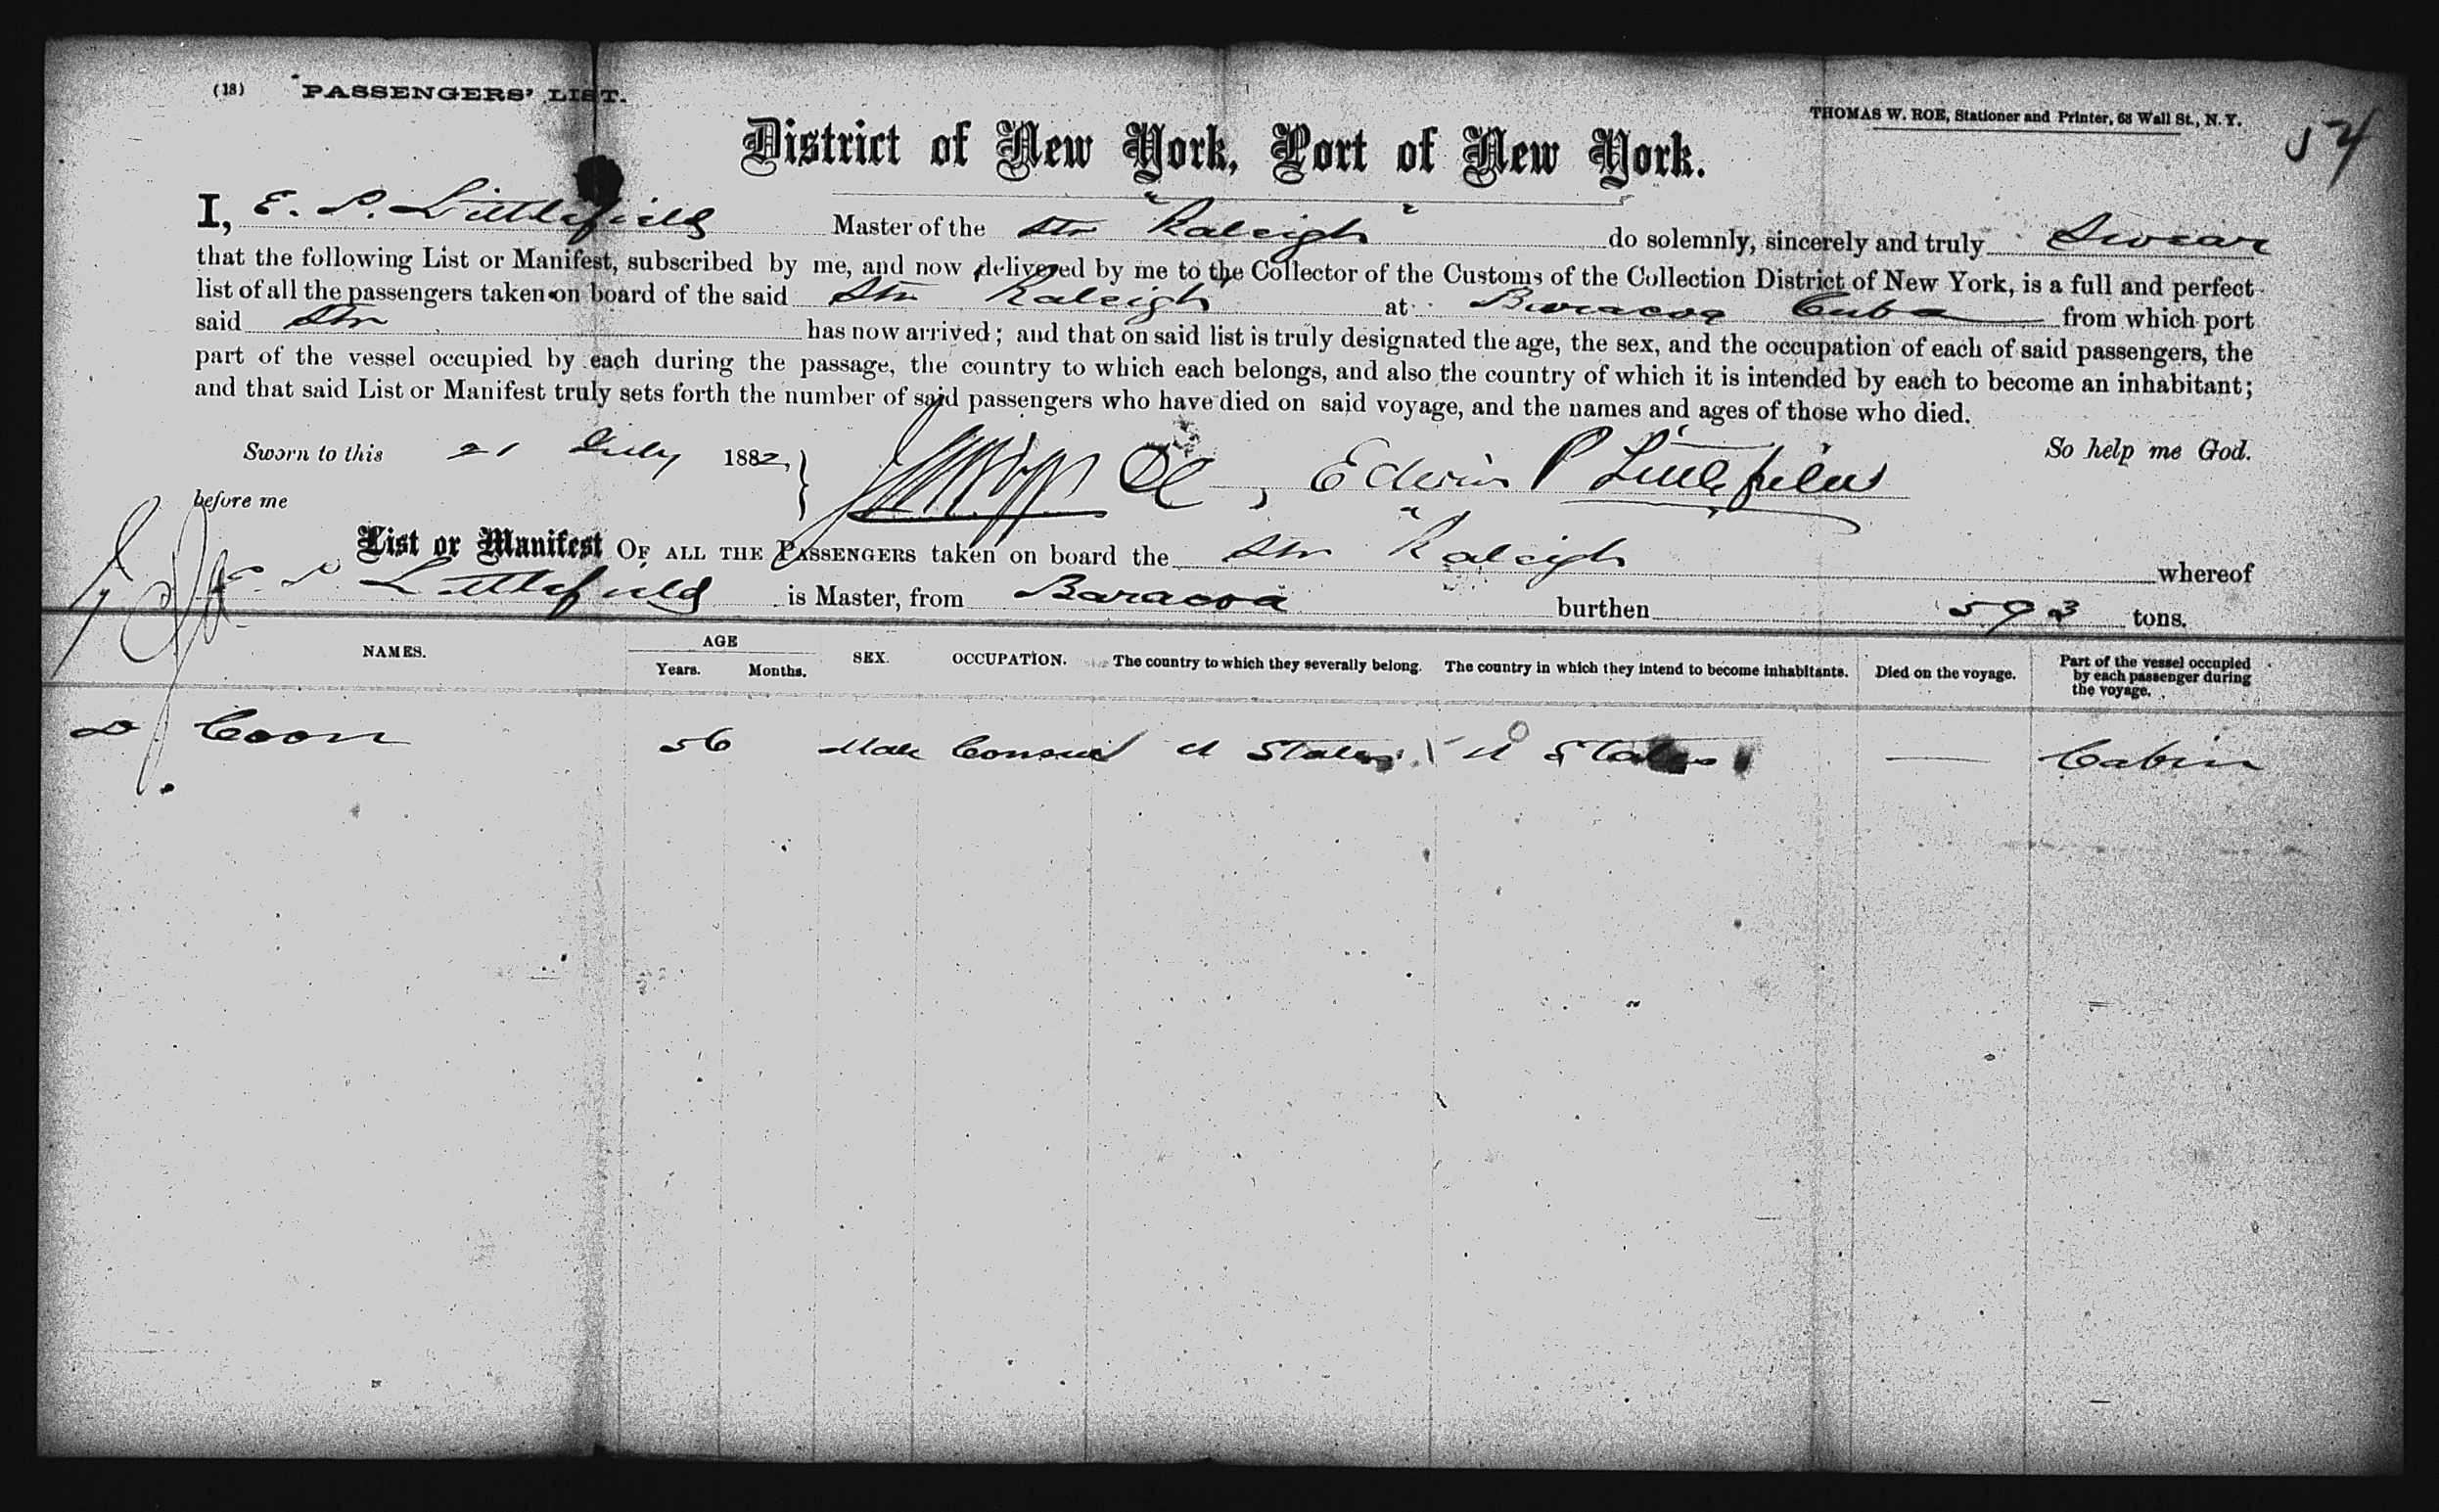 (18) PASSENGERS' LIST.
THOMAS W. ROE, Stationer and Printer, 68 Wall St., N. Y.
54
District of New York, Port of New York.
I, E. P. Littlefield Master of the Str "Raleigh" do solemnly, sincerely and truly Swear
that the following List or Manifest, subscribed by me, and now delivered by me to the Collector of the Customs of the Collection District of New York, is a full and perfect
list of all the passengers taken on board of the said Str Raleigh at Baracoa Cuba from which port
said Str has now arrived; and that on said list is truly designated the age, the sex, and the occupation of each of said passengers, the
part of the vessel occupied by each during the passage, the country to which each belongs, and also the country of which it is intended by each to become an inhabitant;
and that said List or Manifest truly sets forth the number of said passengers who have died on said voyage, and the names and ages of those who died.
So help me God.
Sworn to this 21 July 1882, Edwin P Littlefield
before me
List or Manifest OF ALL THE PASSENGERS taken on board the Str "Raleigh" whereof
E P Littlefield is Master, from Baracoa burthen 593 tons.
NAMES. AGE Years. Months. SEX. OCCUPATION. The country to which they severally belong. The country in which they intend to become inhabitants. Died on the voyage. Part of the vessel occupied by each passenger during the voyage.
D. Coon 56 Male Consul U States U States — Cabin